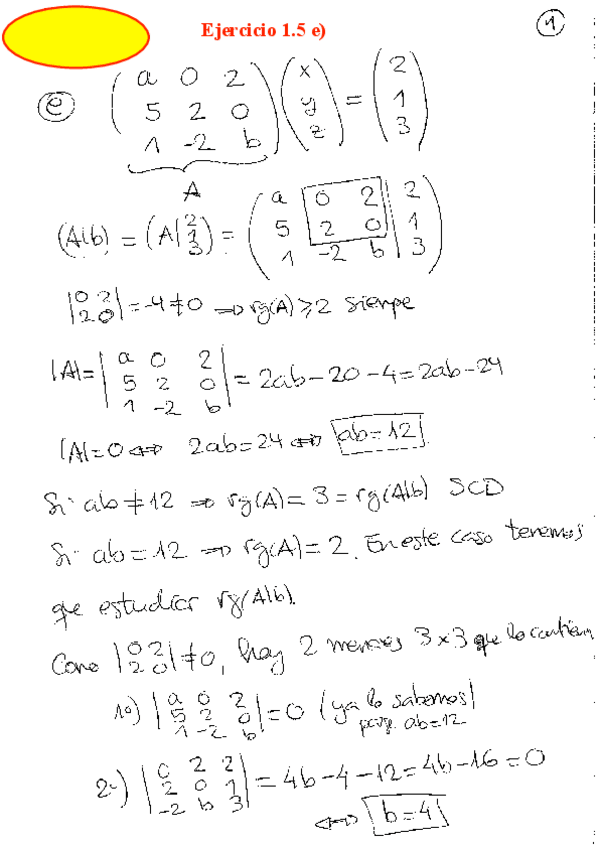 Ejercicio 1.5 e)
1
e) (a 0 2; 5 2 0; 1 -2 b) (x; y; z) = (2; 1; 3)
A
(A|b) = (A|2; 1; 3) = (a 0 2 | 2; 5 2 0 | 1; 1 -2 b | 3)
|0 2; 2 0| = -4 ≠ 0 ⇒ rg(A) ≥ 2 siempe
|A| = |a 0 2; 5 2 0; 1 -2 b| = 2ab - 20 - 4 = 2ab - 24
|A| = 0 ⇔ 2ab = 24 ⇔ ab = 12
Si ab ≠ 12 ⇒ rg(A) = 3 = rg(A|b) SCD
Si ab = 12 ⇒ rg(A) = 2. En este caso tenemos
que estudiar rg(A|b).
Como |0 2; 2 0| ≠ 0, hay 2 menores 3x3 que lo contienen
1º) |a 0 2; 5 2 0; 1 -2 b| = 0 (ya lo sabemos)
porq. ab=12
2º) |0 2 2; 2 0 1; -2 b 3| = 4b - 4 - 12 = 4b - 16 = 0
⇔ b = 4